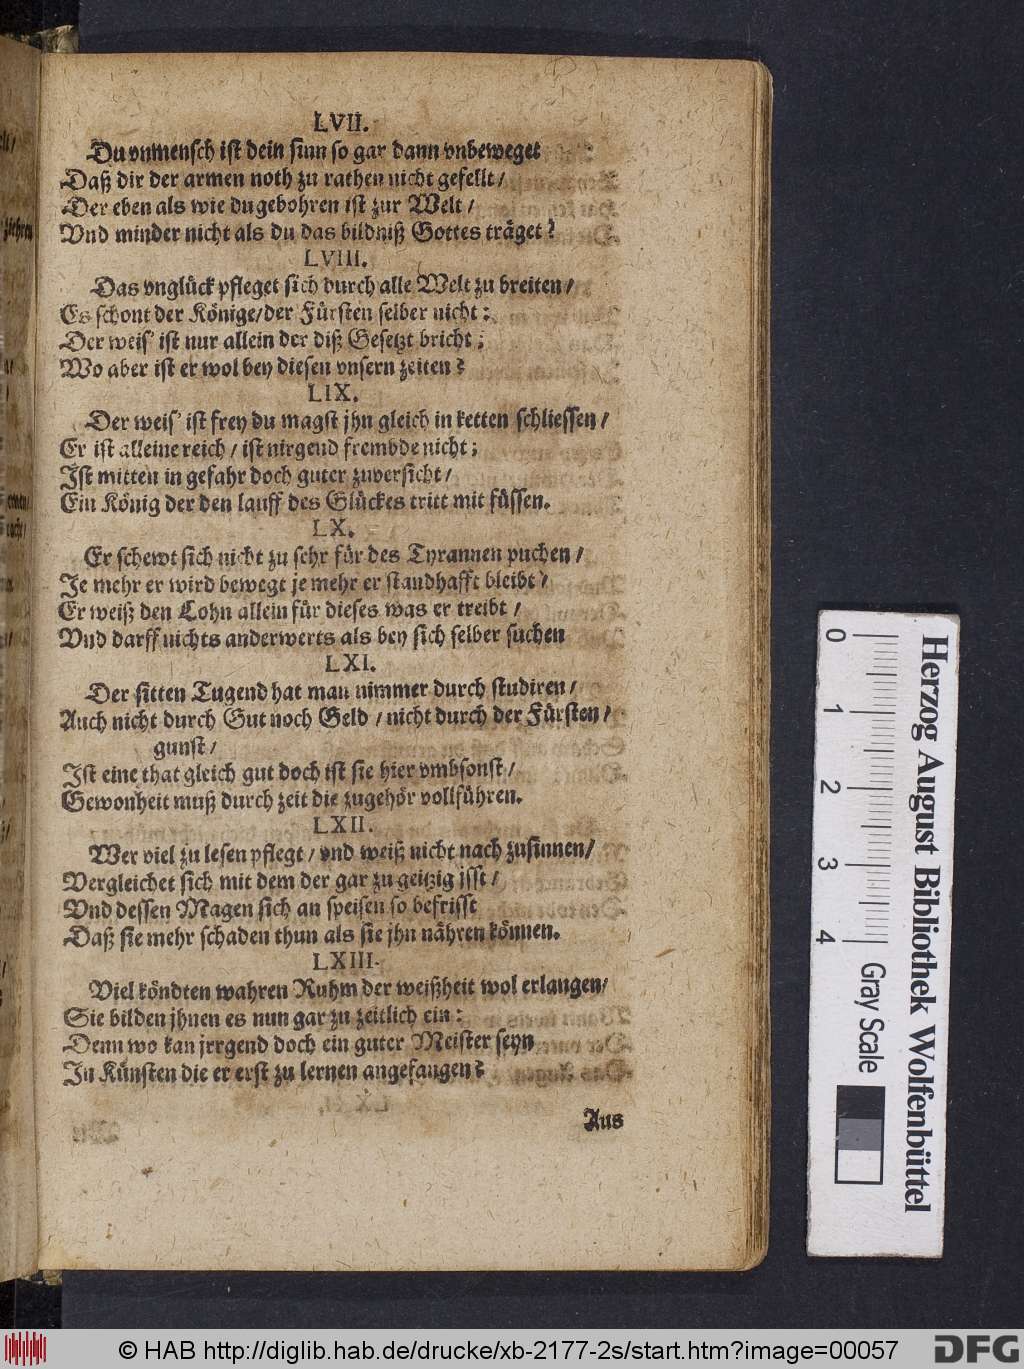 LVII.
Du vnmensch ist dein sinn so gar dann vnbeweget
Daß dir der armen noth zu rathen nicht gefellt /
Der eben als wie du gebohren ist zur Welt /
Vnd minder nicht als du das bildniß Gottes träget?
LVIII.
Das vnglück pfleget sich durch alle Welt zu breiten /
Es schont der Könige/der Fürsten selber nicht:
Der weis' ist nur allein der diß Gesetzt bricht;
Wo aber ist er wol bey diesen vnsern zeiten?
LIX.
Der weis' ist frey du magst jhn gleich in ketten schliessen /
Er ist alleine reich / ist nirgend frembde nicht;
Ist mitten in gefahr doch guter zuversicht /
Ein König der den lauff des Glückes tritt mit füssen.
LX.
Er schewt sich nicht zu sehr für des Tyrannen puchen /
Je mehr er wird bewegt je mehr er standhafft bleibt /
Er weiß den Lohn allein für dieses was er treibt /
Vnd darff nichts anderwerts als bey sich selber suchen
LXI.
Der sitten Tugend hat man nimmer durch studiren /
Auch nicht durch Gut noch Geld / nicht durch der Fürsten /
gunst /
Ist eine that gleich gut doch ist sie hier vmbsonst /
Gewonheit muß durch zeit die zugehör vollführen.
LXII.
Wer viel zu lesen pflegt / vnd weiß nicht nach zusinnen /
Vergleichet sich mit dem der gar zu geitzig jsst /
Vnd dessen Magen sich an speisen so befrisst
Daß sie mehr schaden thun als sie jhn nähren können.
LXIII.
Viel köndten wahren Ruhm der weißheit wol erlangen /
Sie bilden jhnen es nun gar zu zeitlich ein:
Denn wo kan jrrgend doch ein guter Meister seyn
In Künsten die er erst zu lernen angefangen?
Aus
0 1 2 3 4
Gray Scale
Herzog August Bibliothek Wolfenbüttel
© HAB http://diglib.hab.de/drucke/xb-2177-2s/start.htm?image=00057
DFG